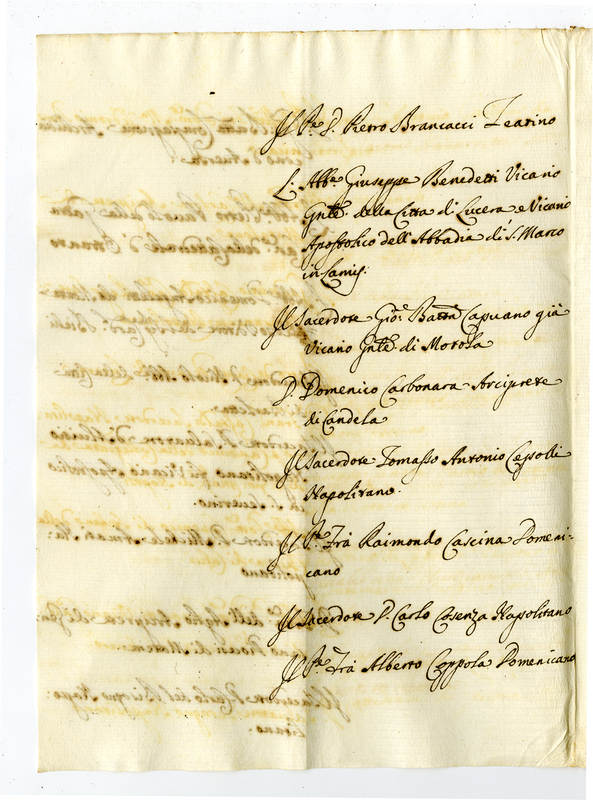 Il Pre. D. Pietro Brancacci Teatino
L: Abbe. Giuseppe Benedetti Vicario
Gnle. della Città di Lucera e Vicario
Apostolico dell'Abbadia di S. Marco
in Lamis:
Il Sacerdote Gio: Battã Capuano già
Vicario Gnle. di Motola
D. Domenico Carbonara Arciprete
di Candela
Il Sacerdote Tomasso Antonio
Napolitano.
Il Pre. Frà Raimondo Cascina Domeni-
cano
Il Sacerdote D. Carlo Cosenza Napolitano
Il Pre. Frà Alberto Coppola Domenicano